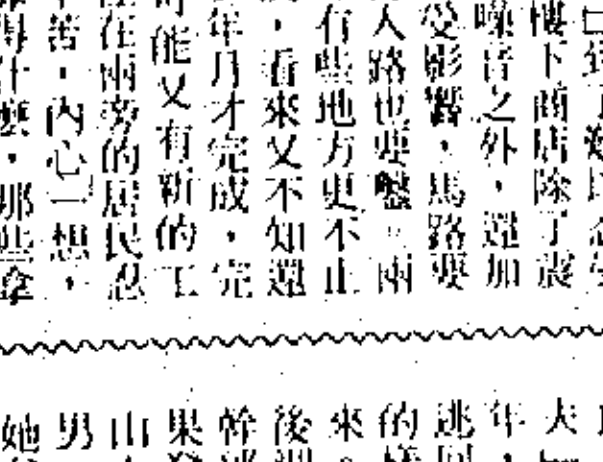 到了難以忍受
樓下商店除了震
噪音之外，還加
受影響，馬路要
人路也要鑿。兩
有些地方更不止
，看來又不知還
年月才完成，完
可能又有新的工
住在兩旁的居民忍
辛苦，內心一想，
得什麼，那些拿
大
年，
逃回
的樣
來。
後
幹
果發
山
男
她